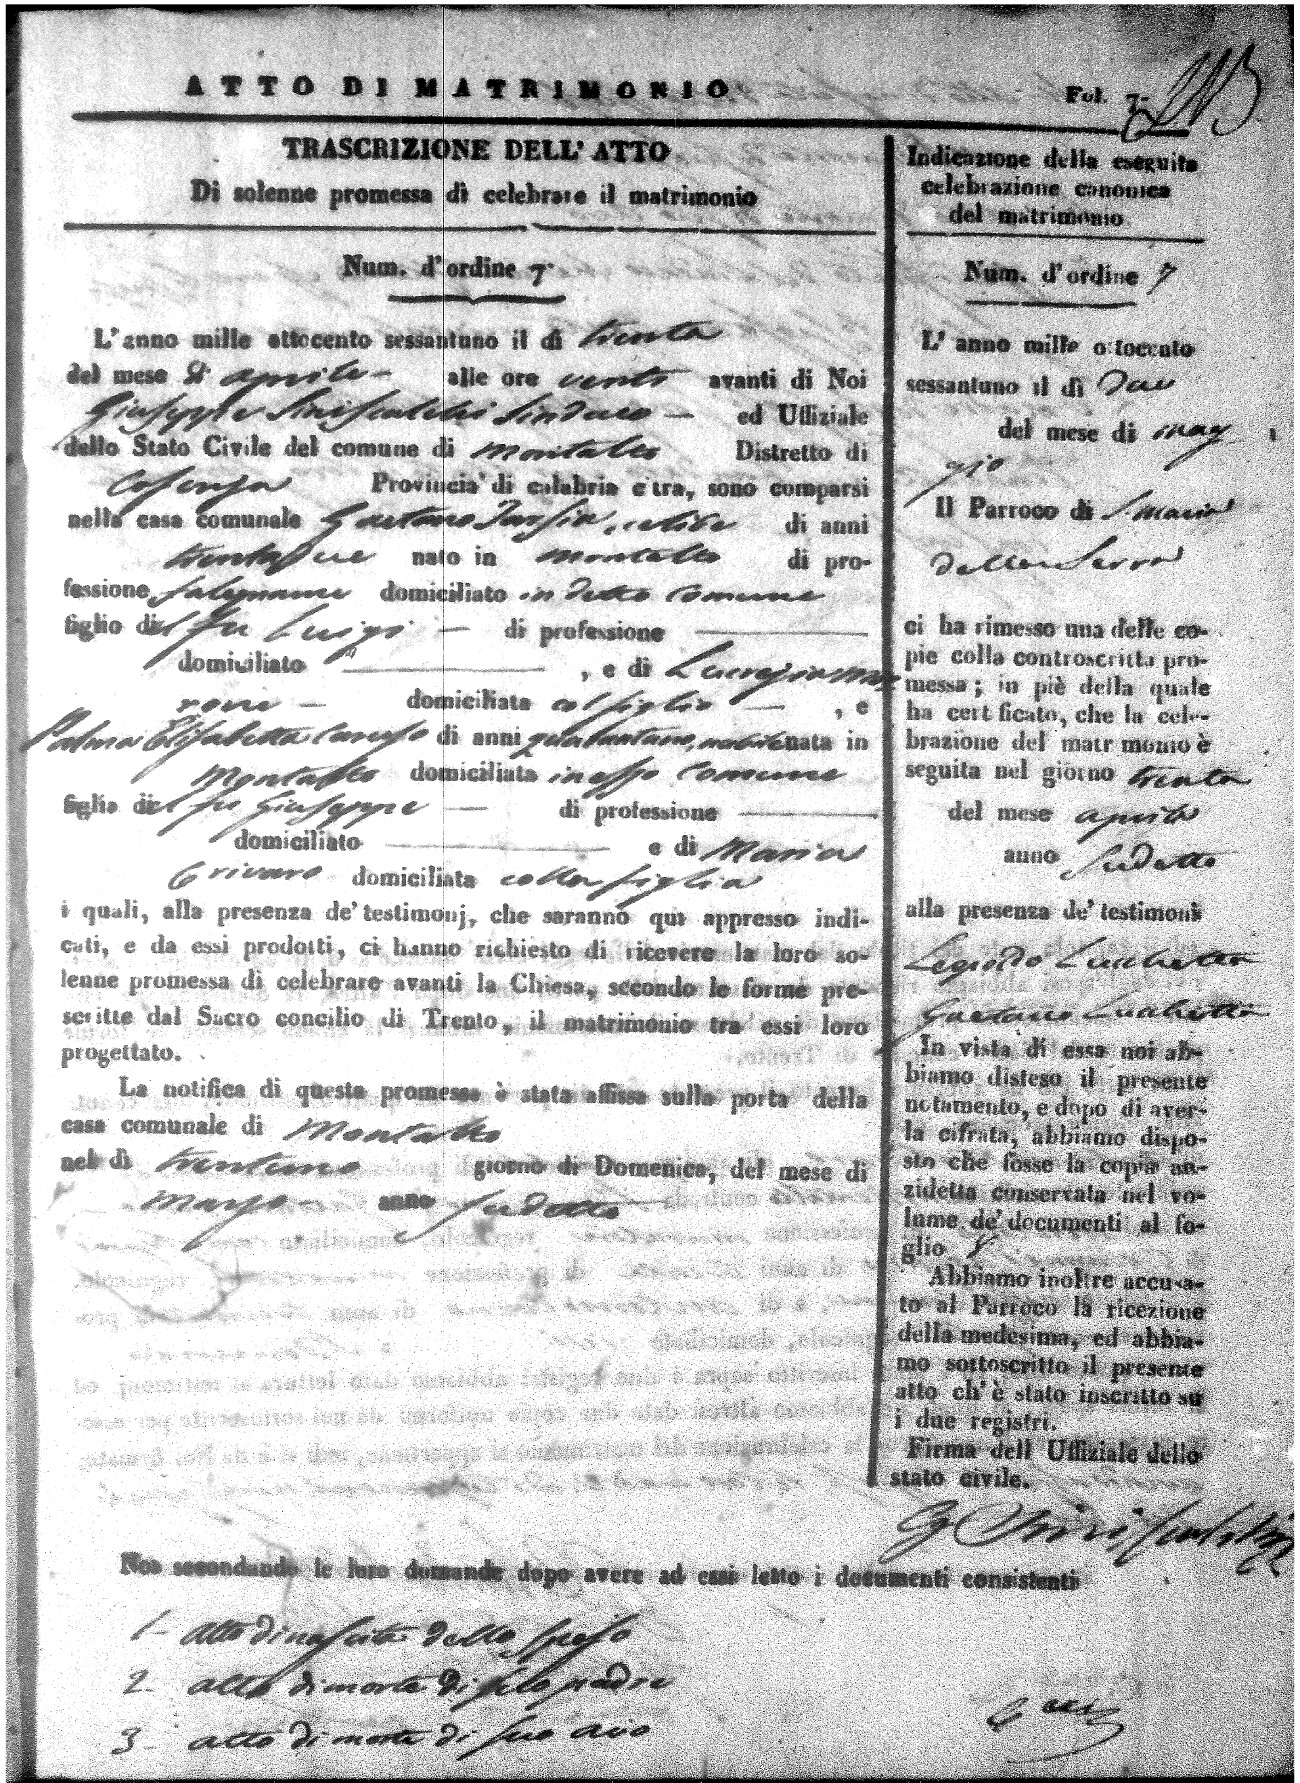 ATTO DI MATRIMONIO
Fol. 7.
TRASCRIZIONE DELL'ATTO
Di solenne promessa di celebrare il matrimonio
Num. d'ordine 7
L'anno mille ottocento sessantuno il dì trenta
del mese di aprile alle ore venti avanti di Noi
Giuseppe Siniscalchi Sindaco ed Uffiziale
dello Stato Civile del comune di Montalto Distretto di
Cosenza Provincia di calabria citra, sono comparsi
nella casa comunale Gaetano Tarsia, celibe di anni
trentadue nato in Montalto di pro-
fessione falegname domiciliato in detto Comune
figlio del fu Luigi di professione
domiciliato , e di Lucrezia
domiciliata col figlio , e
Palma Elisabetta Caruso di anni quarantuno, nubile nata in
Montalto domiciliata in esso Comune
figlia del fu Giuseppe di professione
domiciliato e di Maria
Crivaro domiciliata colla figlia
i quali, alla presenza de' testimonj, che saranno qui appresso indi-
cati, e da essi prodotti, ci hanno richiesto di ricevere la loro so-
lenne promessa di celebrare avanti la Chiesa, secondo le forme pre-
scritte dal Sacro concilio di Trento, il matrimonio tra essi loro
progettato.
La notifica di questa promessa è stata affissa sulla porta della
casa comunale di Montalto
nel dì trentuno giorno di Domenica, del mese di
Marzo anno sudetto
Indicazione della eseguita
celebrazione canonica
del matrimonio
Num. d'ordine 7
L'anno mille ottocento
sessantuno il dì due
del mese di mag
gio
Il Parroco di S. Maria
della Serra
ci ha rimesso una delle co-
pie colla controscritta pro-
messa; in piè della quale
ha certificato, che la cele-
brazione del matrimonio è
seguita nel giorno trenta
del mese aprile
anno sudetto
alla presenza de' testimoni
Luchetta
Gaetano Luchetta
In vista di essa noi ab-
biamo disteso il presente
notamento, e dopo di aver-
la cifrata, abbiamo dispo-
sto che fosse la copia an-
zidetta conservata nel vo-
lume de' documenti al fo-
glio 8
Abbiamo inoltre accusa-
to al Parroco la ricezione
della medesima, ed abbia-
mo sottoscritto il presente
atto ch'è stato inscritto su
i due registri.
Firma dell Uffiziale dello
stato civile.
G Siniscalchi
Noi secondando le loro domande dopo avere ad essi letto i documenti consistenti
1- atto di nascita dello sposo
2- atto di morte di suo padre
3- atto di morte di suo avo